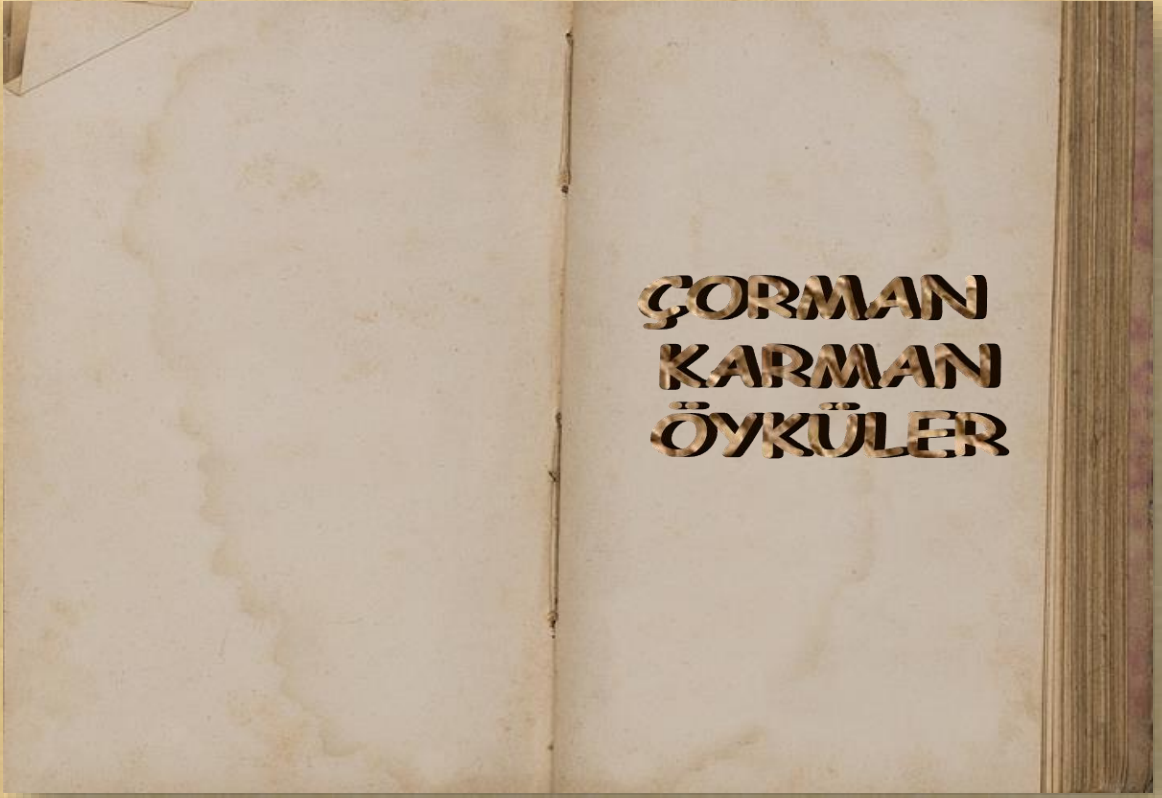 ÇORMAN
KARMAN
ÖYKÜLER